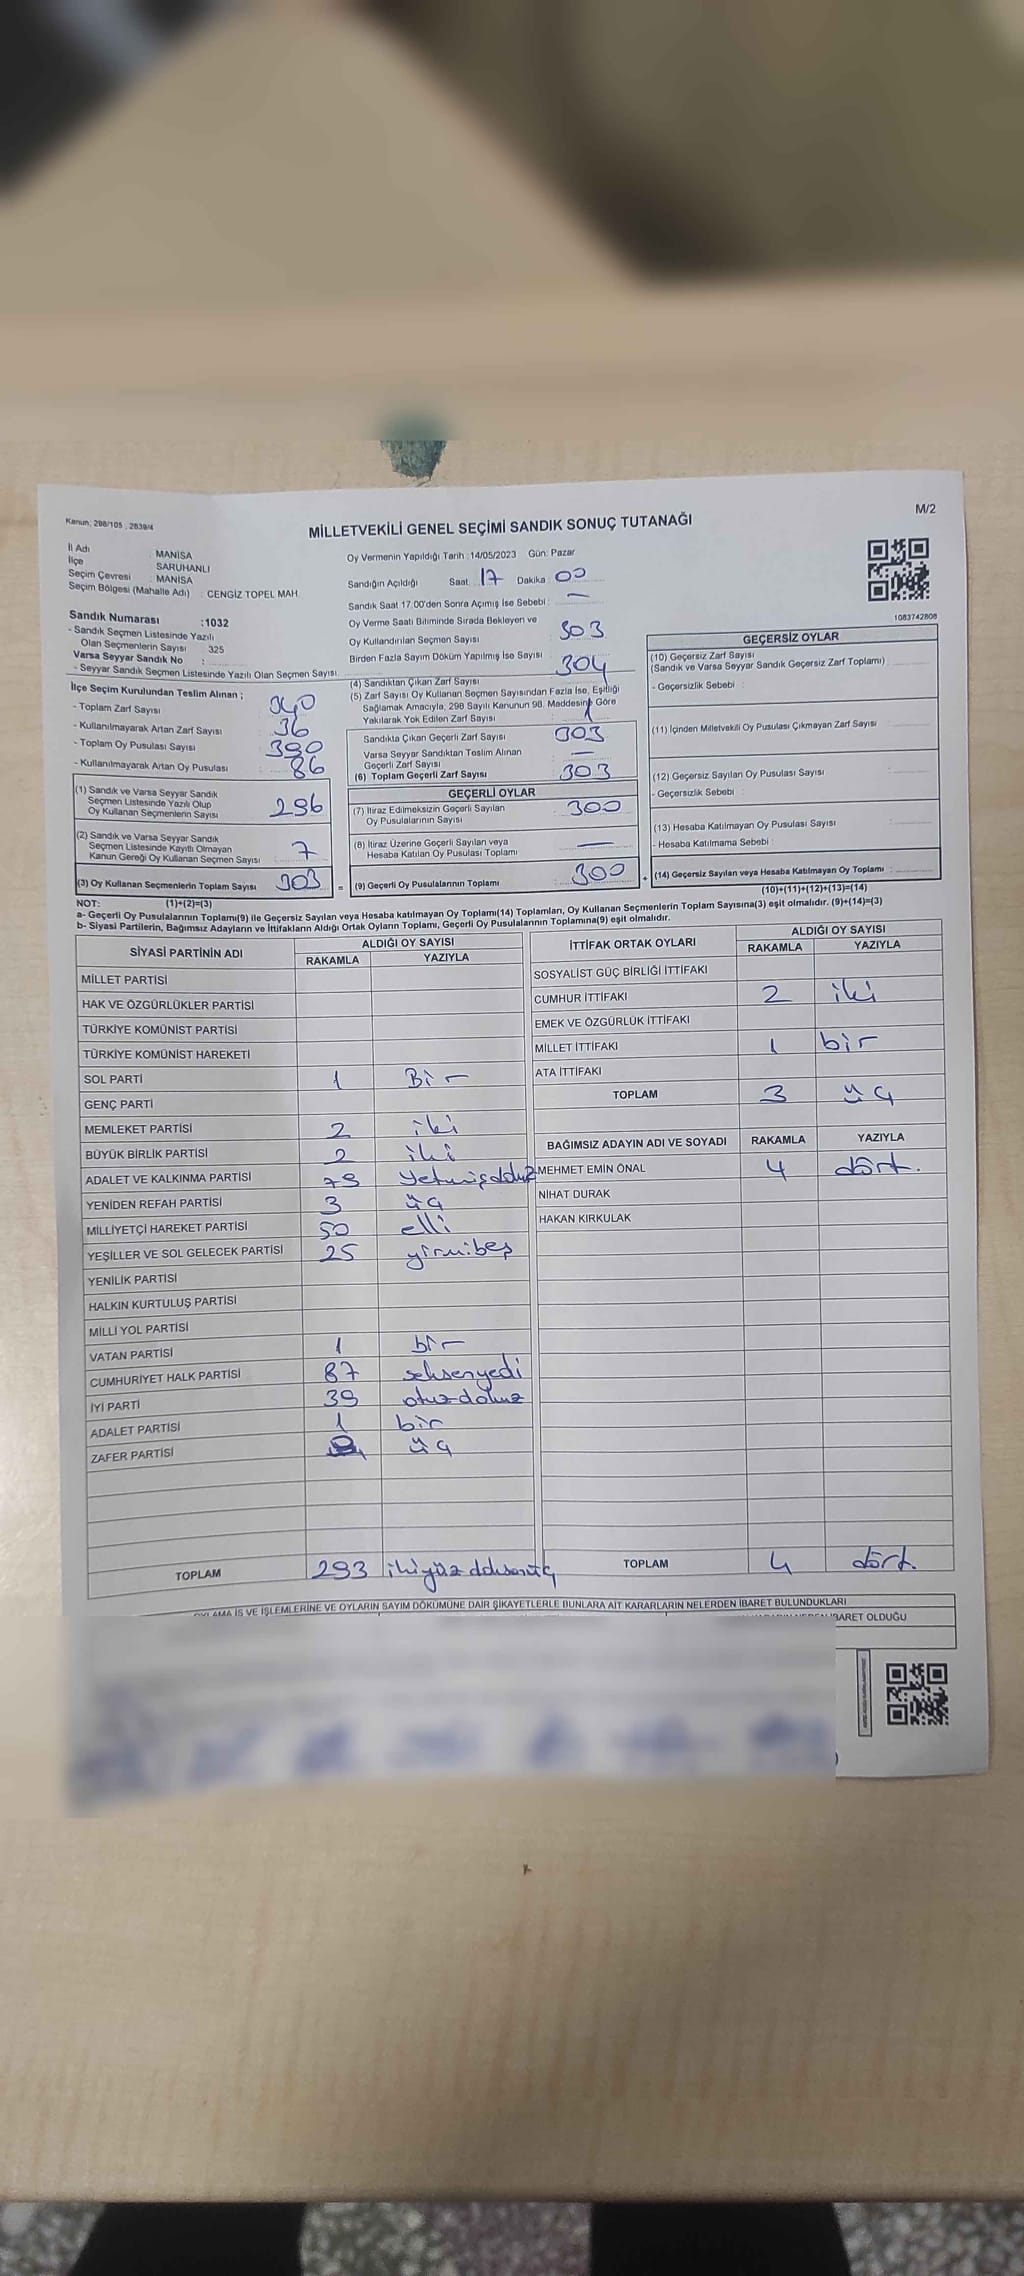 Kanun; 298/105 , 2839/4
M/2
MİLLETVEKİLİ GENEL SEÇİMİ SANDIK SONUÇ TUTANAĞI
İl Adı : MANİSA
İlçe : SARUHANLI
Seçim Çevresi : MANİSA
Seçim Bölgesi (Mahalle Adı) : CENGİZ TOPEL MAH.
Sandık Numarası :1032
- Sandık Seçmen Listesinde Yazılı
Olan Seçmenlerin Sayısı 325
Varsa Seyyar Sandık No :
- Seyyar Sandık Seçmen Listesinde Yazılı Olan Seçmen Sayısı
Oy Vermenin Yapıldığı Tarih :14/05/2023 Gün: Pazar
Sandığın Açıldığı Saat 17 Dakika 00
Sandık Saat 17.00'den Sonra Açımış İse Sebebi : —
Oy Verme Saati Bitiminde Sırada Bekleyen ve
Oy Kullandırılan Seçmen Sayısı 303
Birden Fazla Sayım Döküm Yapılmış İse Sayısı
1083742808
İlçe Seçim Kurulundan Teslim Alınan ;
- Toplam Zarf Sayısı 340
- Kullanılmayarak Artan Zarf Sayısı 36
- Toplam Oy Pusulası Sayısı 390
- Kullanılmayarak Artan Oy Pusulası 86
(1) Sandık ve Varsa Seyyar Sandık
Seçmen Listesinde Yazılı Olup
Oy Kullanan Seçmenlerin Sayısı 296
(2) Sandık ve Varsa Seyyar Sandık
Seçmen Listesinde Kayıtlı Olmayan
Kanun Gereği Oy Kullanan Seçmen Sayısı 7
(3) Oy Kullanan Seçmenlerin Toplam Sayısı 303 =
(4) Sandıktan Çıkan Zarf Sayısı 304
(5) Zarf Sayısı Oy Kullanan Seçmen Sayısından Fazla İse, Eşitliği
Sağlamak Amacıyla, 298 Sayılı Kanunun 98. Maddesine Göre
Yakılarak Yok Edilen Zarf Sayısı 1
Sandıkta Çıkan Geçerli Zarf Sayısı 303
Varsa Seyyar Sandıktan Teslim Alınan
Geçerli Zarf Sayısı —
(6) Toplam Geçerli Zarf Sayısı 303
GEÇERLİ OYLAR
(7) İtiraz Edilmeksizin Geçerli Sayılan
Oy Pusulalarının Sayısı 300
(8) İtiraz Üzerine Geçerli Sayılan veya
Hesaba Katılan Oy Pusulası Toplamı —
(9) Geçerli Oy Pusulalarının Toplamı 300 +
GEÇERSİZ OYLAR
(10) Geçersiz Zarf Sayısı
(Sandık ve Varsa Seyyar Sandık Geçersiz Zarf Toplamı)
- Geçersizlik Sebebi :
(11) İçinden Milletvekili Oy Pusulası Çıkmayan Zarf Sayısı
(12) Geçersiz Sayılan Oy Pusulası Sayısı
- Geçersizlik Sebebi :
(13) Hesaba Katılmayan Oy Pusulası Sayısı
- Hesaba Katılmama Sebebi :
(14) Geçersiz Sayılan veya Hesaba Katılmayan Oy Toplamı :
NOT: (1)+(2)=(3) (10)+(11)+(12)+(13)=(14)
a- Geçerli Oy Pusulalarının Toplamı(9) ile Geçersiz Sayılan veya Hesaba katılmayan Oy Toplamı(14) Toplamları, Oy Kullanan Seçmenlerin Toplam Sayısına(3) eşit olmalıdır. (9)+(14)=(3)
b- Siyasi Partilerin, Bağımsız Adayların ve İttifakların Aldığı Ortak Oyların Toplamı, Geçerli Oy Pusulalarının Toplamına(9) eşit olmalıdır.
SİYASİ PARTİNİN ADI ALDIĞI OY SAYISI
RAKAMLA YAZIYLA
MİLLET PARTİSİ
HAK VE ÖZGÜRLÜKLER PARTİSİ
TÜRKİYE KOMÜNİST PARTİSİ
TÜRKİYE KOMÜNİST HAREKETİ
SOL PARTİ 1 Bir
GENÇ PARTİ
MEMLEKET PARTİSİ 2 iki
BÜYÜK BİRLİK PARTİSİ 2 iki
ADALET VE KALKINMA PARTİSİ 79 Yetmişdokuz
YENİDEN REFAH PARTİSİ 3 üç
MİLLİYETÇİ HAREKET PARTİSİ 50 elli
YEŞİLLER VE SOL GELECEK PARTİSİ 25 yirmibeş
YENİLİK PARTİSİ
HALKIN KURTULUŞ PARTİSİ
MİLLİ YOL PARTİSİ
VATAN PARTİSİ 1 bir
CUMHURİYET HALK PARTİSİ 87 seksenyedi
İYİ PARTİ 39 otuzdokuz
ADALET PARTİSİ 1 bir
ZAFER PARTİSİ üç
TOPLAM 293 ikiyüz doksanüç
İTTİFAK ORTAK OYLARI ALDIĞI OY SAYISI
RAKAMLA YAZIYLA
SOSYALİST GÜÇ BİRLİĞİ İTTİFAKI
CUMHUR İTTİFAKI 2 iki
EMEK VE ÖZGÜRLÜK İTTİFAKI
MİLLET İTTİFAKI 1 bir
ATA İTTİFAKI
TOPLAM 3 üç
BAĞIMSIZ ADAYIN ADI VE SOYADI RAKAMLA YAZIYLA
MEHMET EMİN ÖNAL 4 dört.
NİHAT DURAK
HAKAN KIRKULAK
TOPLAM 4 dört.
OYLAMA İŞ VE İŞLEMLERİNE VE OYLARIN SAYIM DÖKÜMÜNE DAİR ŞİKAYETLERLE BUNLARA AİT KARARLARIN NELERDEN İBARET BULUNDUKLARI
İBARET OLDUĞU